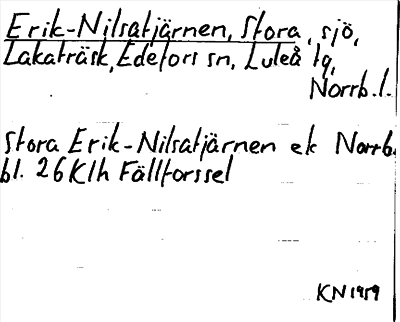 Erik-Nilsatjärnen, Stora, sjö,
Lakaträsk, Edefors sn, Luleå tg,
Norrb.l.
Stora Erik-Nilsatjärnen ek Norrb.
bl. 26 Klh Fällforssel
KN 1959